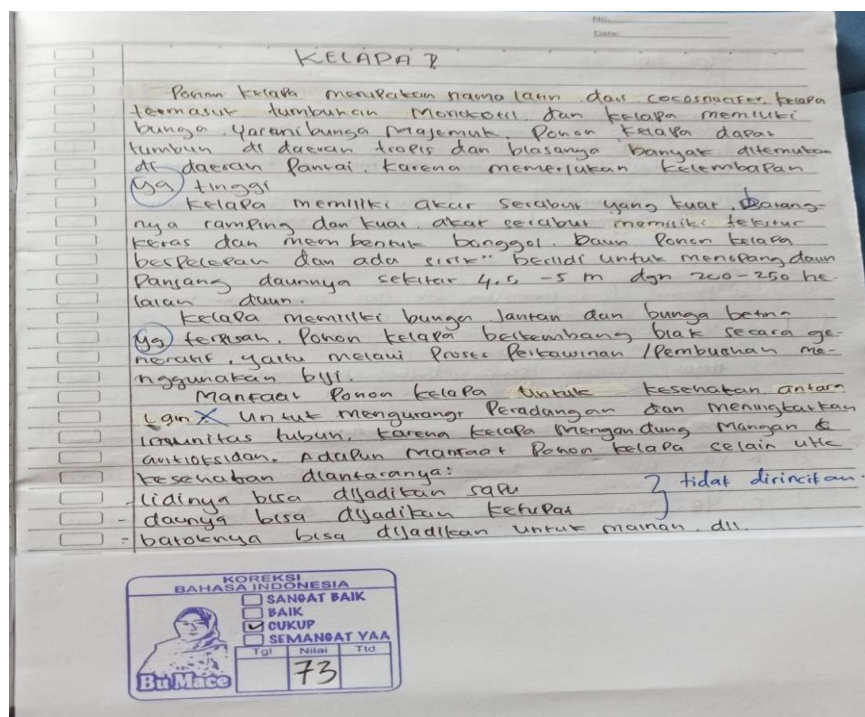 No.
Date:
KELAPA
Pohon kelapa merupakan nama latin dari cocosnucifer. kelapa
termasuk tumbuhan Monokotil dan kelapa memiliki
bunga yarani bunga Majemuk. Pohon kelapa dapat
tumbuh di daerah tropis dan biasanya banyak ditemukan
di daerah Pantai. Karena memerlukan kelembapan
yg tinggi
Kelapa memiliki akar serabut yang kuat. Batang-
nya ramping dan kuat. akar serabut memiliki tekstur
keras dan membentuk bonggol. Daun Pohon kelapa
berpelepah dan ada sisik" berlidi untuk menopang daun
Panjang daunnya sekitar 4,5 -5 m dgn 200-250 he
laian daun.
Kelapa memiliki bunga Jantan dan bunga betina
yg terpisah. Pohon kelapa berkembang biak secara ge-
neratif, yaitu melaui Proses Perkawinan /Pembuahan me-
nggunakan biji.
Manfaat Pohon kelapa untuk kesehatan antara
lain untuk mengurangi Peradangan dan meningkatkan
imunitas tubuh. karena kelapa Mengandung Mangan &
antioksidan. Adapun manfaat Pohon kelapa selain utk
kesehatan diantaranya:
- lidinya bisa dijadikan sapu
- daunya bisa dijadikan ketupat
- batoknya bisa dijadikan untuk mainan. dll.
tidak dirincikan
KOREKSI
BAHASA INDONESIA
SANGAT BAIK
BAIK
CUKUP
SEMANGAT YAA
Tgl Nilai Ttd
73
Bu Mace